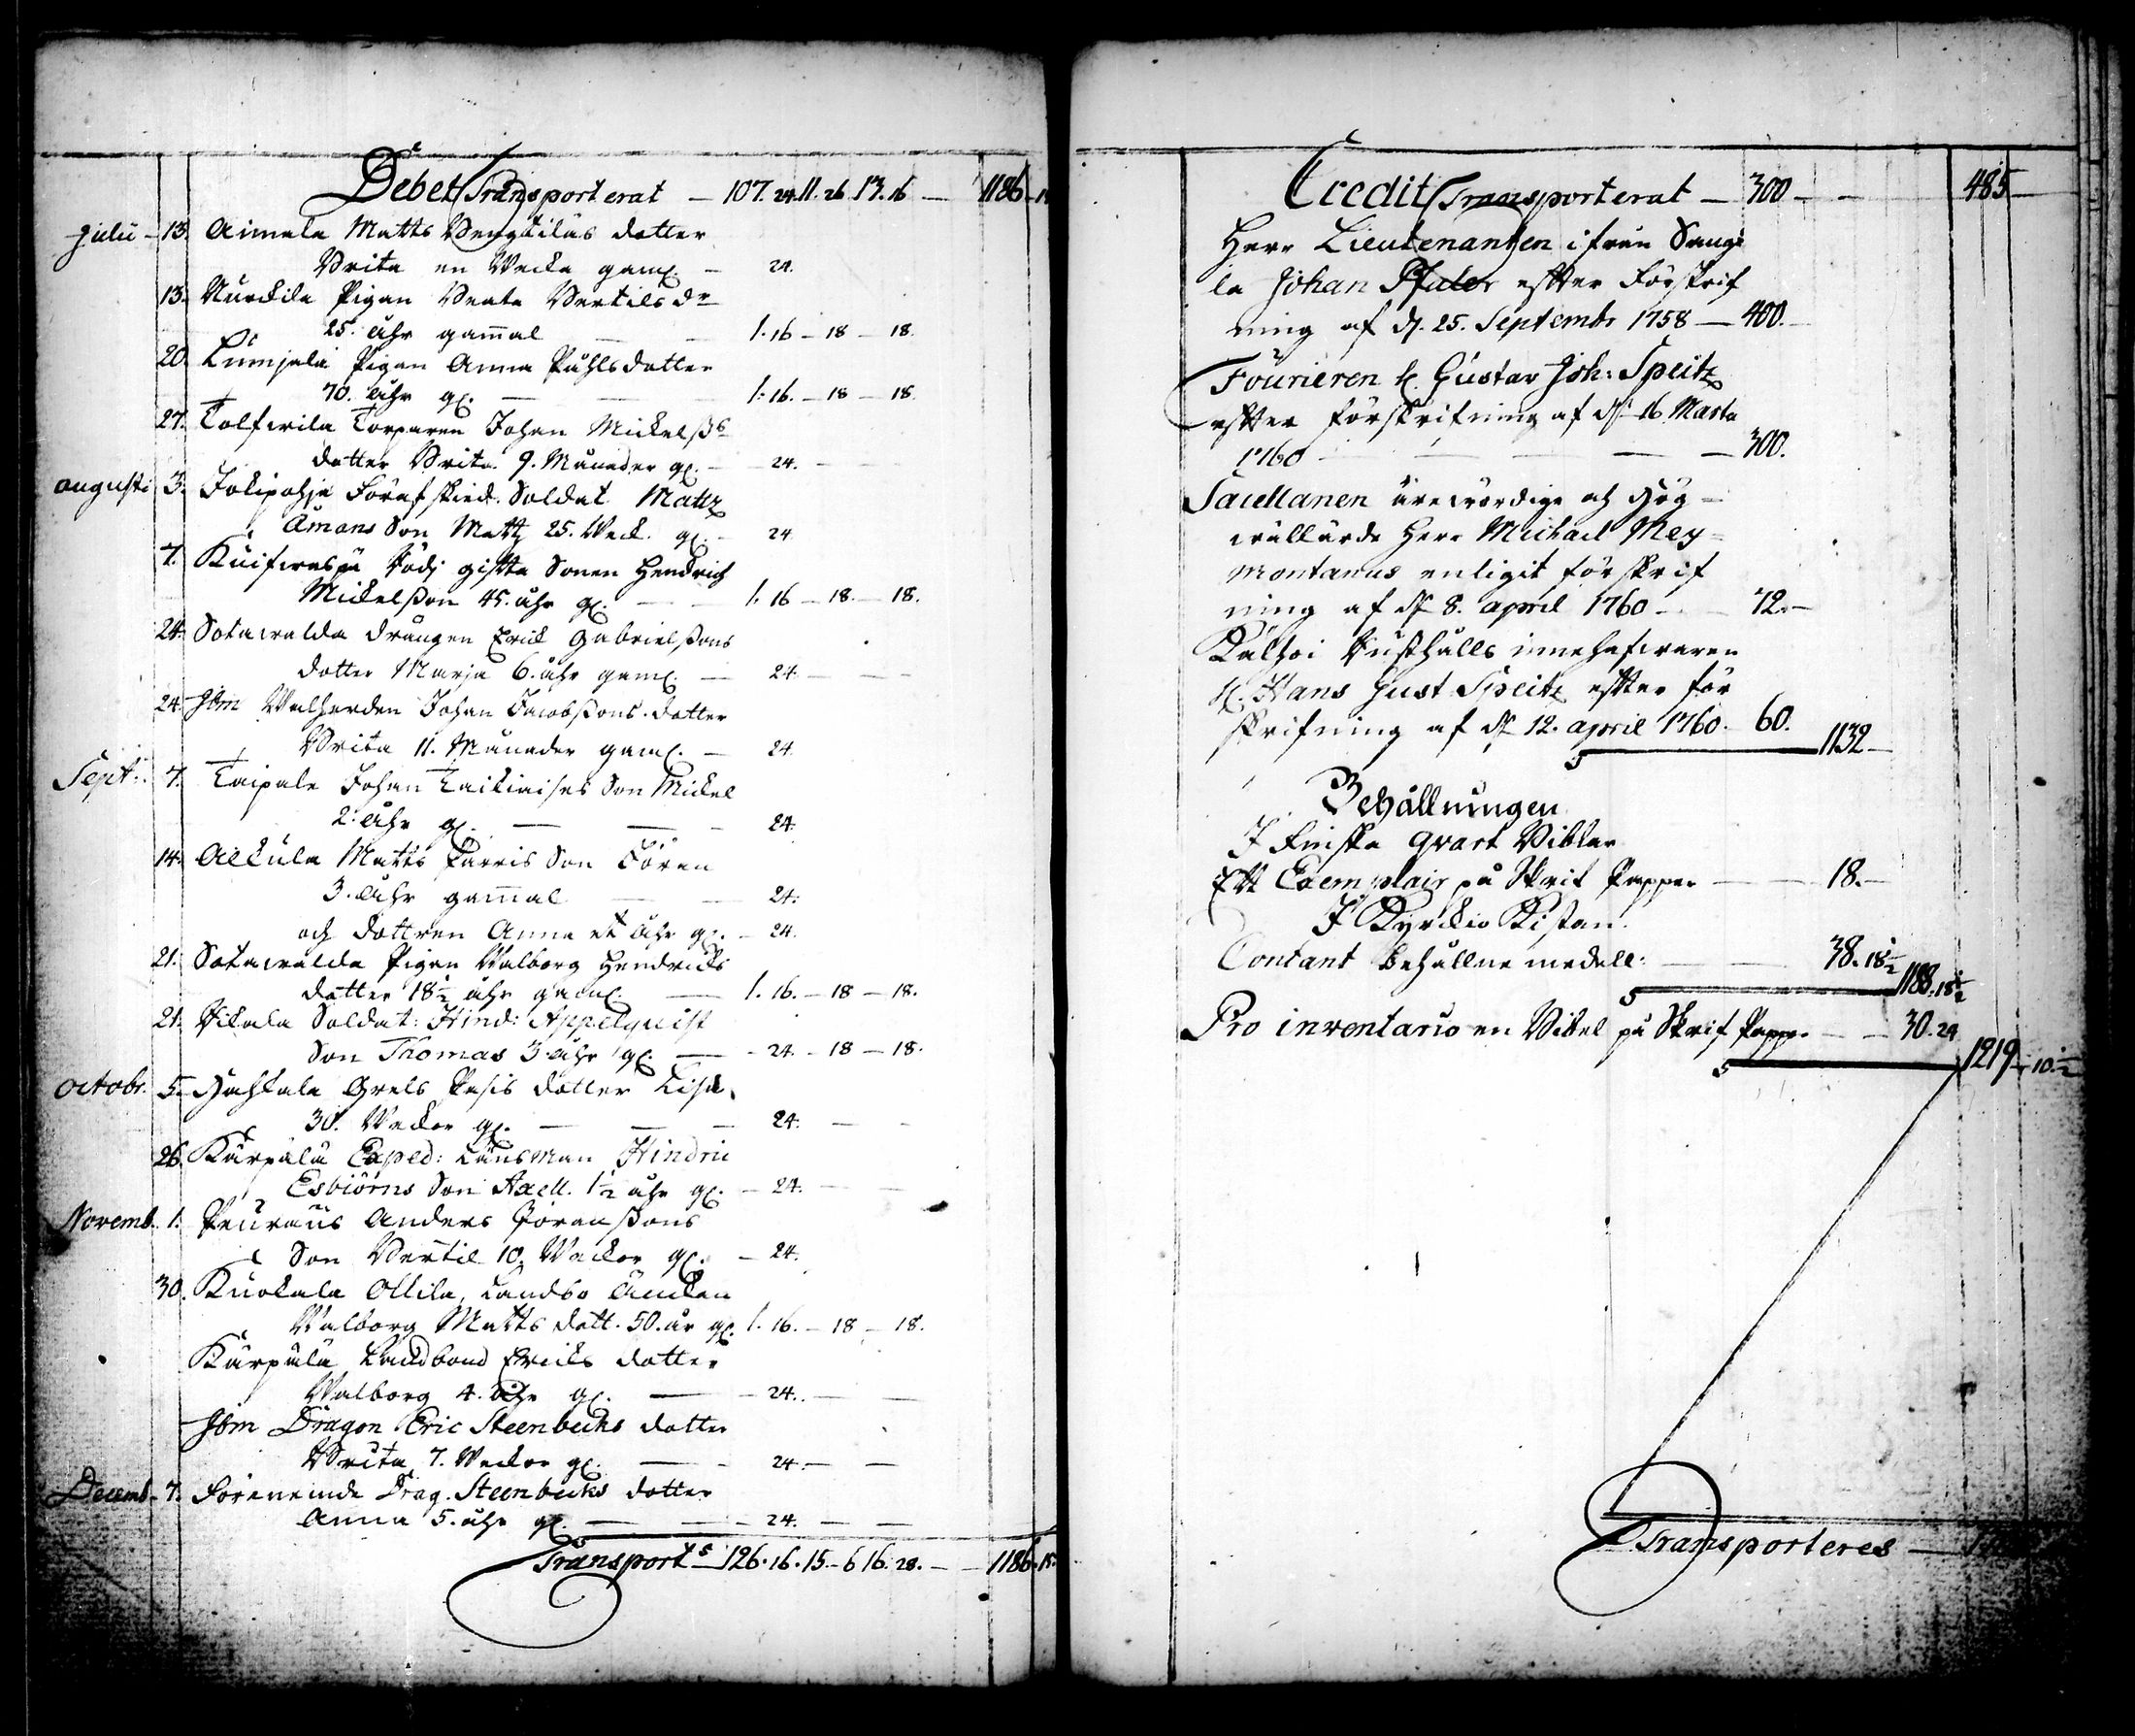 Debet Transporterat — 107. 24. 11. 26. 13. 16 — 1186
Julii - 13. Aimala Matts Bengtilas dotter
Brita en Wecka gaml. — 24.
13. Nurckila Pigan Beata Bertils dr
25. åhr gammal — 1. 16 — 18 — 18.
20. Lumjala Pigan Anna Påhlsdotter
70. åhr gl. — 1. 16. — 18 — 18.
27. Tolfwila Torparen Johan Mickelss
dotter Brita 9. Månader gl. — 24.
augusti 3. Jokipohja Förafskied. Soldat Matts
Åmans Son Matts 25. Weck. gl. — 24
7. gifta Sonen Hendrich
Mickelsson 45. åhr gl. — 1. 16 — 18. — 18.
24. Sotawalda Drängen Erick Gabrielssons
dotter Marja 6. åhr gaml. — 24.
24. Ibm Walherden Johan Jacobssons dotter
Brita 11. Månader gaml. — 24.
Sept: 7. Taipale Johan Son Mickel
2. åhr gl. — 24.
14. Alkula Matts Son Jören
3. åhr gammal — 24.
och dottren Anna et åhr gl. — 24.
21. Sotawalda Pigan Walborg Hendricks
dotter 18½ åhr gaml. — 1. 16. — 18 — 18.
21. Wikala Soldat: Hind: Appelquist
Son Thomas 3 åhr gl. — 24. — 18 — 18.
Octobr. 5. Hahkala Grels dotter Lisa
30. Weckor gl. — 24.
26. Kärpälä Exped: Länsman Hindric
Esbiörns Son Axell. 1½ åhr gl. — 24.
Novemb. 1. Anders Göranssons
Son Bertil 10. Weckor gl. — 24.
30. Kuokala Ollila, Landbo Änckan
Walborg Matts dott. 50. år gl. 1. 16. — 18 — 18.
Kärpälä Landbond Ericks dotter
Walborg 4. åhr gl. — 24.
Ibm Dragon Eric Steenbecks dotter
Brita 7. Weckor gl. — 24.
Decemb - 7. Förenemde Drag. Steenbecks dotter
Anna 5. åhr gl. — 24.
Transports — 126. 16. 15. — 6 16. 28. — 1186. 15.
Credit Transporterat — 300 — 485 —
Herr Lieutenanten ifrån Saugi
la Johan Pfaler effter Förskrif
ning af d. 25. Septembr 1758 — 400. —
Fourieren H. Gustav Joh: Speitz
effter förskrifning af d. 16 Martii
1760 — 300.
Sacellanen ärewördige och Hög-
wällärde Herr Michael Mey-
montanus enligit förskrif
ning af d. 8. april 1760 — 72. —
Kålhoi Rusthålls innehafwaren
H. Hans Gust Speitz effter för
skrifning af d. 12. april 1760. 60. 1132 —
Behållningen
I Finska qvart Biblar
Ett Exemplair på Skrif Papper — 18. —
I Kyrckio Kistan.
Contant behållne medell: — 38. 18½
1188. 18½
Pro inventario en Bibel på Skrif Papp. — 30. 24
1219. 10½
Transporteres —